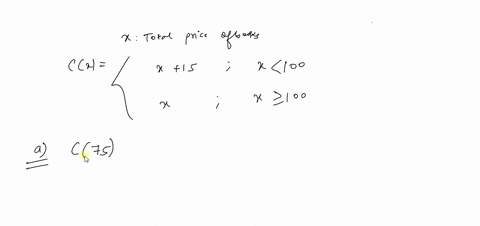 x : Total price of books
C(x) = { x + 15 ; x < 100
x ; x ≥ 100
a) C(75)